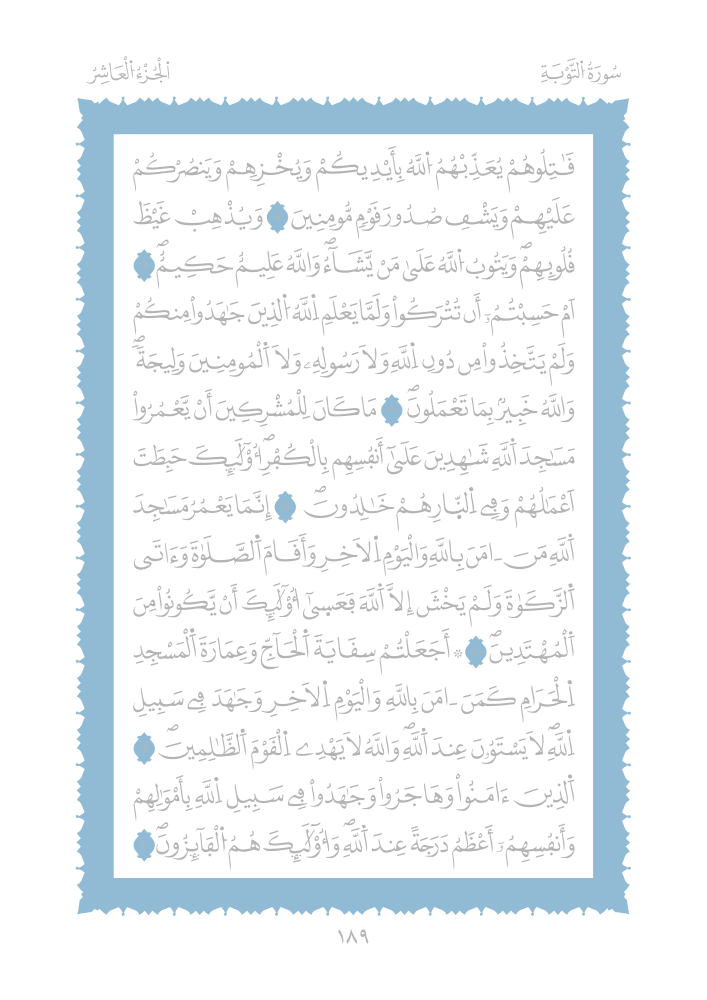 سُورَةُ التَّوْبَةِ
اَلْجُزْءُ الْعَاشِرُ
قَٰتِلُوهُمْ يُعَذِّبْهُمُ اُللَّهُ بِأَيْدِيكُمْ وَيُخْزِهِمْ وَيَنصُرْكُمْ
عَلَيْهِمْ وَيَشْفِ صُدُورَ قَوْمٖ مُّومِنِينَ وَيُذْهِبْ غَيْظَ
قُلُوبِهِمْۖ وَيَتُوبُ اُللَّهُ عَلَىٰ مَنْ يَّشَآءُۖ وَاللَّهُ عَلِيمٌ حَكِيمٌۖ
اَمْ حَسِبْتُمُۥٓ أَن تُتْرَكُواْ وَلَمَّا يَعْلَمِ اِللَّهُ اُلذِينَ جَٰهَدُواْ مِنكُمْ
وَلَمْ يَتَّخِذُواْ مِن دُونِ اِللَّهِ وَلَا رَسُولِهِۦ وَلَا اَلْمُومِنِينَ وَلِيجَةٗۖ
وَاللَّهُ خَبِيرُۢ بِمَا تَعْمَلُونَۖ مَا كَانَ لِلْمُشْرِكِينَ أَنْ يَّعْمُرُواْ
مَسَٰجِدَ اَللَّهِ شَٰهِدِينَ عَلَىٰٓ أَنفُسِهِم بِالْكُفْرِۖ أُوْلَٰٓئِكَ حَبِطَتَ
اَعْمَٰلُهُمْ وَفِے اِلنّ۪ارِ هُمْ خَٰلِدُونَۖ إِنَّمَا يَعْمُرُ مَسَٰجِدَ
اَللَّهِ مَنَ ـ امَنَ بِاللَّهِ وَالْيَوْمِ اِلَاخِرِ وَأَقَامَ اَلصَّلَوٰةَ وَءَاتَى
اَلزَّكَوٰةَ وَلَمْ يَخْشَ إِلَّا اَللَّهَ فَعَسۭىٰٓ أُوْلَٰٓئِكَ أَنْ يَّكُونُواْ مِنَ
اَلْمُهْتَدِينَۖ ۞ أَجَعَلْتُمْ سِقَايَةَ اَلْحَآجِّ وَعِمَارَةَ اَلْمَسْجِدِ
اِلْحَرَامِ كَمَنَ ـ امَنَ بِاللَّهِ وَالْيَوْمِ اِلَاخِرِ وَجَٰهَدَ فِے سَبِيلِ
اِللَّهِۖ لَا يَسْتَوُۥنَ عِندَ اَللَّهِۖ وَاللَّهُ لَا يَهْدِے اِلْقَوْمَ اَلظَّٰلِمِينَۖ
اَلذِينَ ءَامَنُواْ وَهَاجَرُواْ وَجَٰهَدُواْ فِے سَبِيلِ اِللَّهِ بِأَمْوَٰلِهِمْ
وَأَنفُسِهِمُۥٓ أَعْظَمُ دَرَجَةً عِندَ اَللَّهِۖ وَأُوْلَٰٓئِكَ هُمُ اُلْفَآئِزُونَۖ
١٨٩